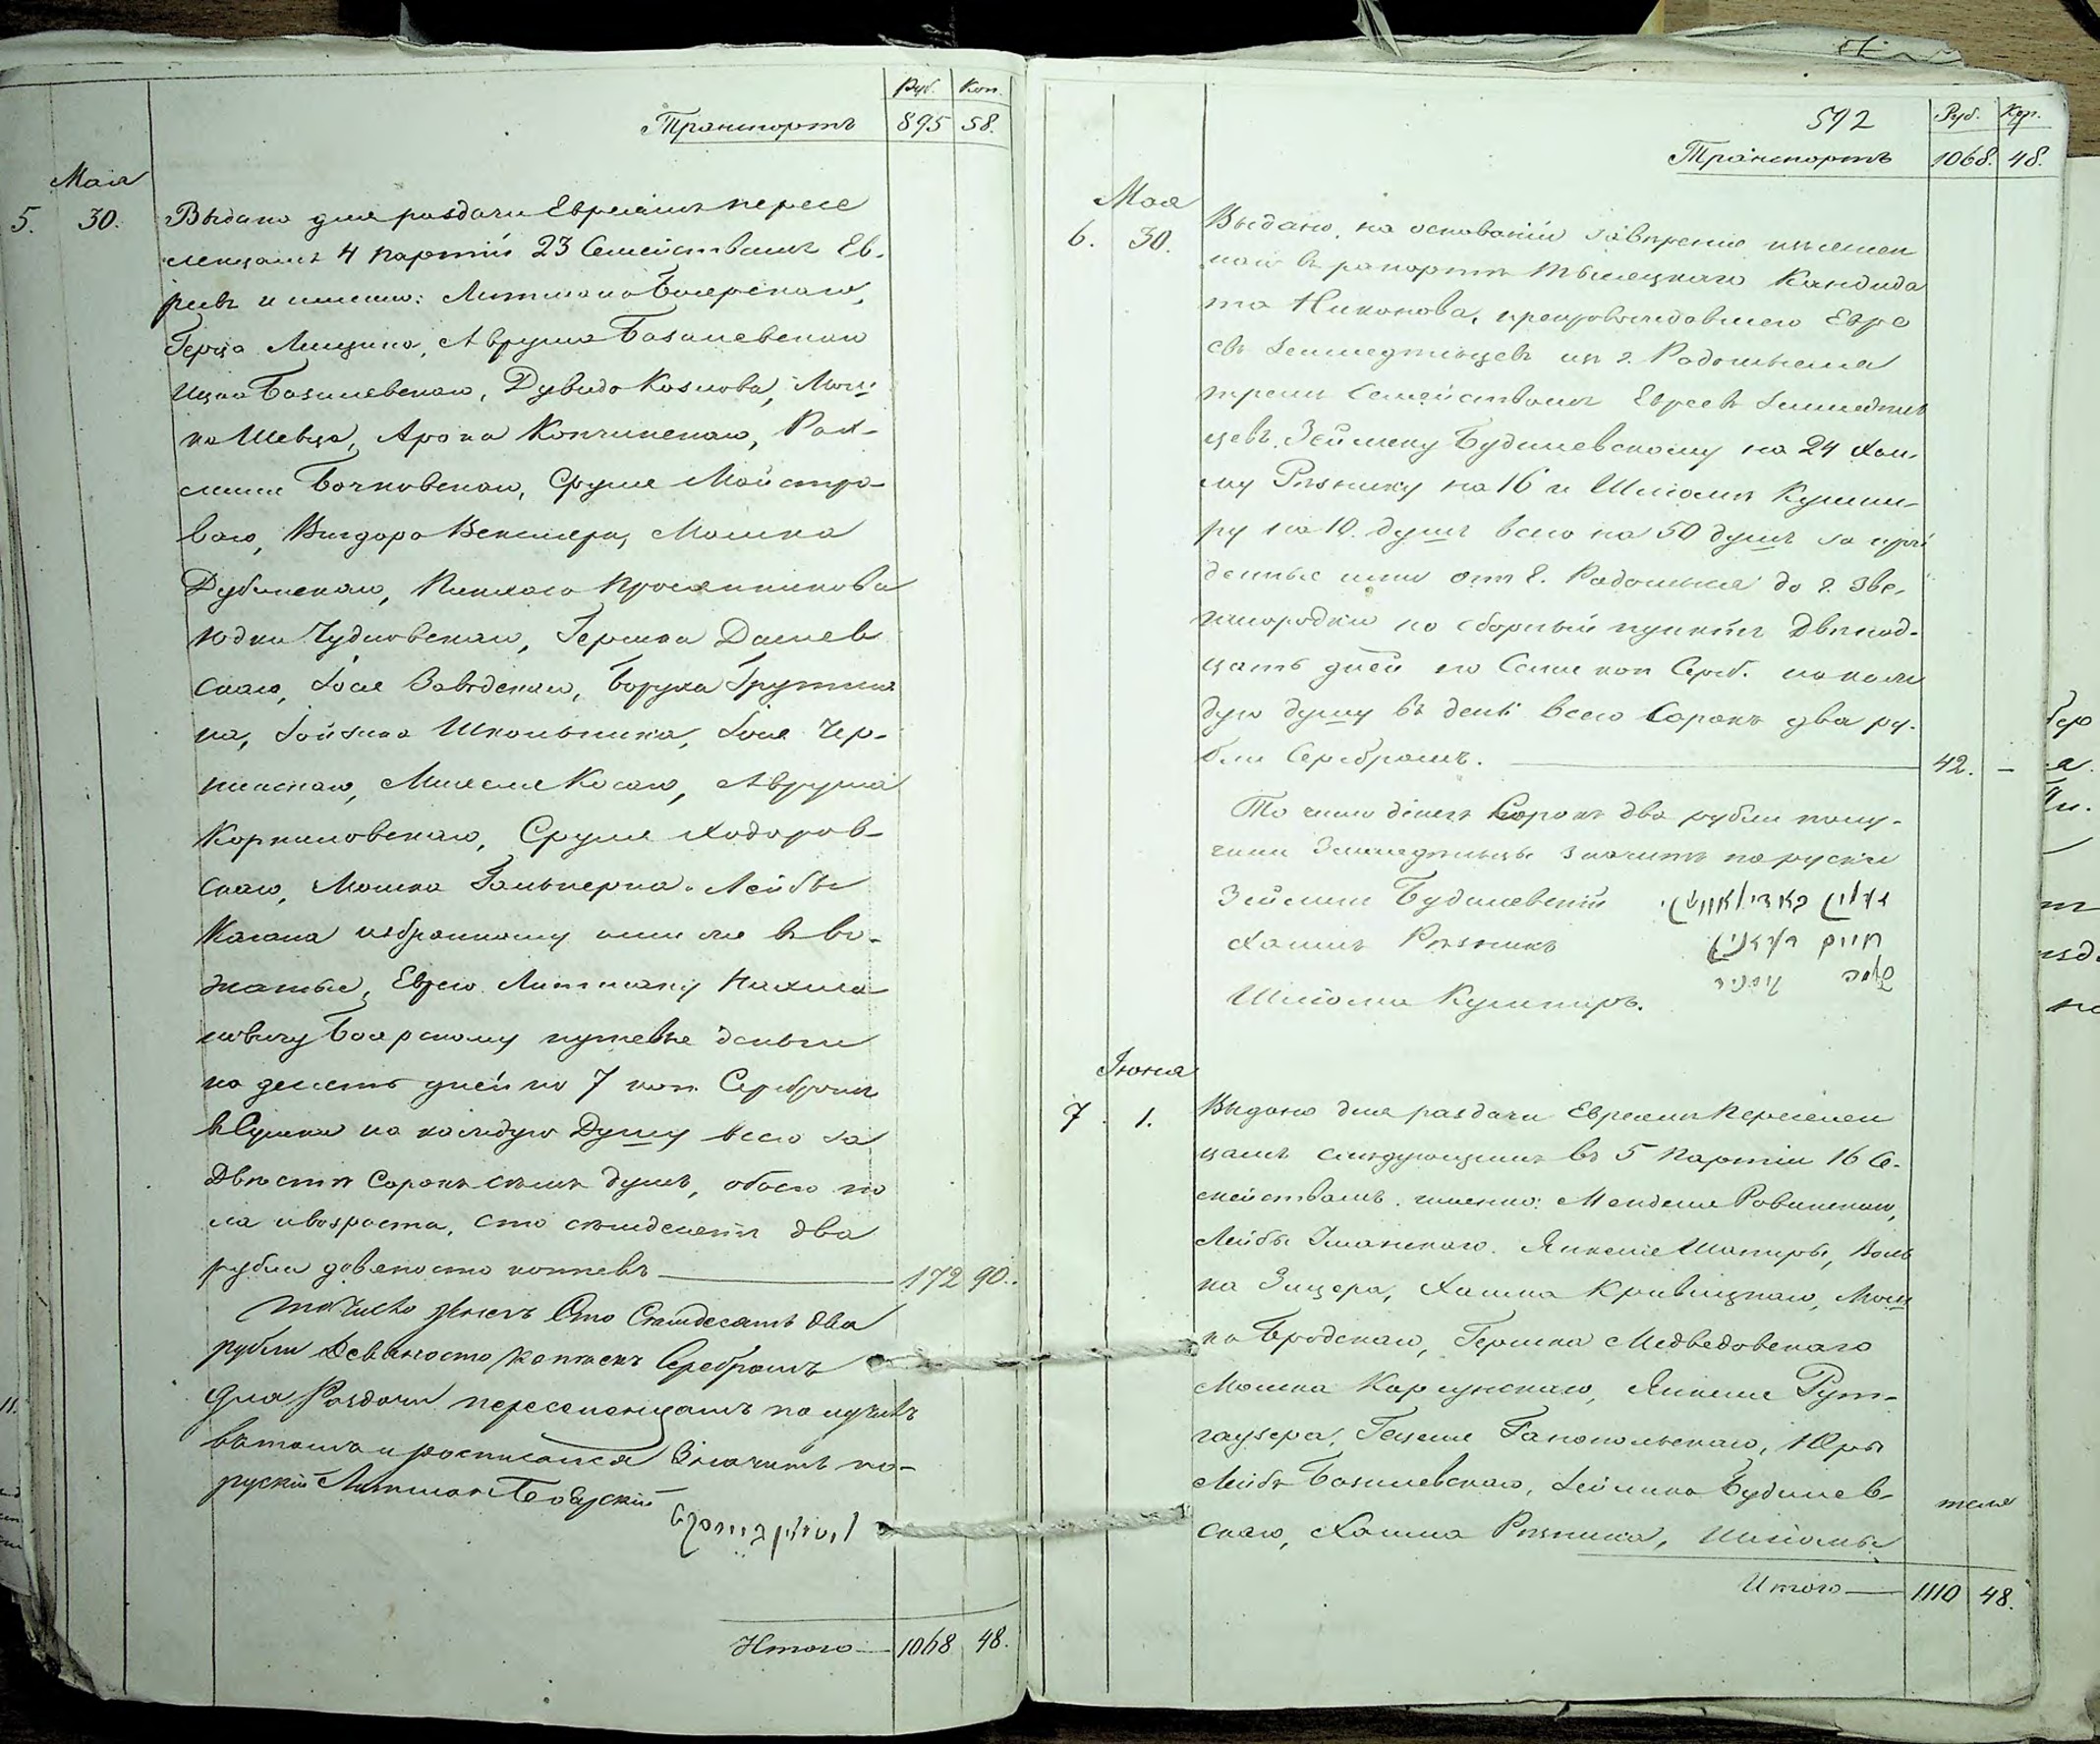 Руб. Коп.
Транспортъ 895 58.
Мая
5. 30. Выдано для раздачи Евреямъ пересе
ленцамъ 4 партіи 23 Семействамъ Ев-
реевъ и имянно: Литмана Боярскаго,
Герца Лещина, Аврума Базилевскаго
Ицка Базилевскаго, Дувида Козлова, Мош-
ка Шевца, Арона Копчинскаго, Рах-
миля Бачковскаго, Сруля Майстро-
ваго, Вигдора Векслера, Мошка
Дубинскаго, Пинхаса Просяникова
Юдки Чудновскаго, Гершка Дашев
скаго, Іося Заводскаго, Боруха Грутма
на, Іойзика Школьника, Іося Чер-
нинскаго, Михеля Косаго, Аврума
Корниловскаго, Сруля Ходоров-
скаго, Мошка Гальперна, Лейбы
Кагана избранному ими же въ во-
жатые, Еврею Литману Нахма
новичу Боярскому путевые деньги
на десять дней по 7 коп. Серебромъ
въ Сутки на каждую Душу всего за
Двести Сорокъ семь душъ, обоего по
ла и возроста, сто семдесятъ два
рубли девяносто копѣекъ 172 90.
то число денегъ Сто Семдесятъ два
рубли Девяносто копѣекъ Серебромъ
для Раздачи переселенцамъ получилъ
въ томъ и росписался Значитъ по-
рускій Литманъ Боярскій
Итого 1068 48.
592 Руб. Коп.
Транспортъ 1068. 48.
Мая
6. 30. Выдано, на основаніи
въ рапорте Кандида
та Никонова, препровождавшего Евре
евъ Земледѣльцевъ изъ г. Радомысля
тремъ Семействамъ Евреевъ Земледѣль
цевъ. Зейлику Будилевскому на 24 Хаи
му Рѣзнику на 16 и Шліомѣ Кушни-
ру на 10. душъ всего на 50 душъ за прой
денные ими отъ г. Радомысля до г. Зве-
нигородки на сборный пунктъ Двенад-
цать дней по Семи коп Сереб. на каж
дую душу въ день всего Сорокъ два ру-
бли Серебромъ. 42. —
То число денегъ Сорокъ два рубли полу-
чили Земледѣльцы значитъ по рускіи
Зейликъ Будилевскій
Хаимъ Рѣзникъ חיים
Шліома Кушниръ. שלמה
Іюня
7. 1. Выдано для раздачи Евреямъ Переселен
цамъ слѣдующимъ въ 5 Партіи 16 Се-
мействамъ. имянно: Менделя Ровинскаго,
Лейбы Уманскаго. Янкеля Шапиры, Воль
ка Зицера, Хаима Кривицкаго, Мош
ка Бродскаго, Гершка Медведовскаго
Мошка Карсунскаго, Янкеля Рут-
гаузера, Гецеля Ганопольскаго, Юры
Лейбы Базилевскаго, Зейлика Будилев-
скаго, Хаима Рѣзника, Шліомы
Итого 1110 48.